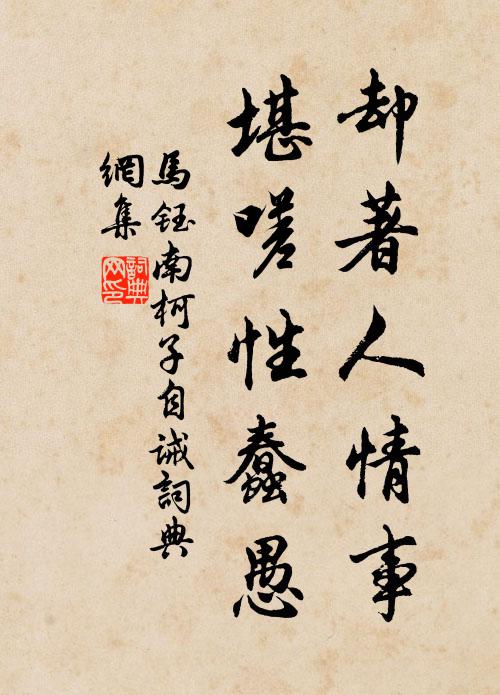 却著人情事
堪嗟性蠢愚
馬鈺南柯子自誡詞典
網集
詞典
网印